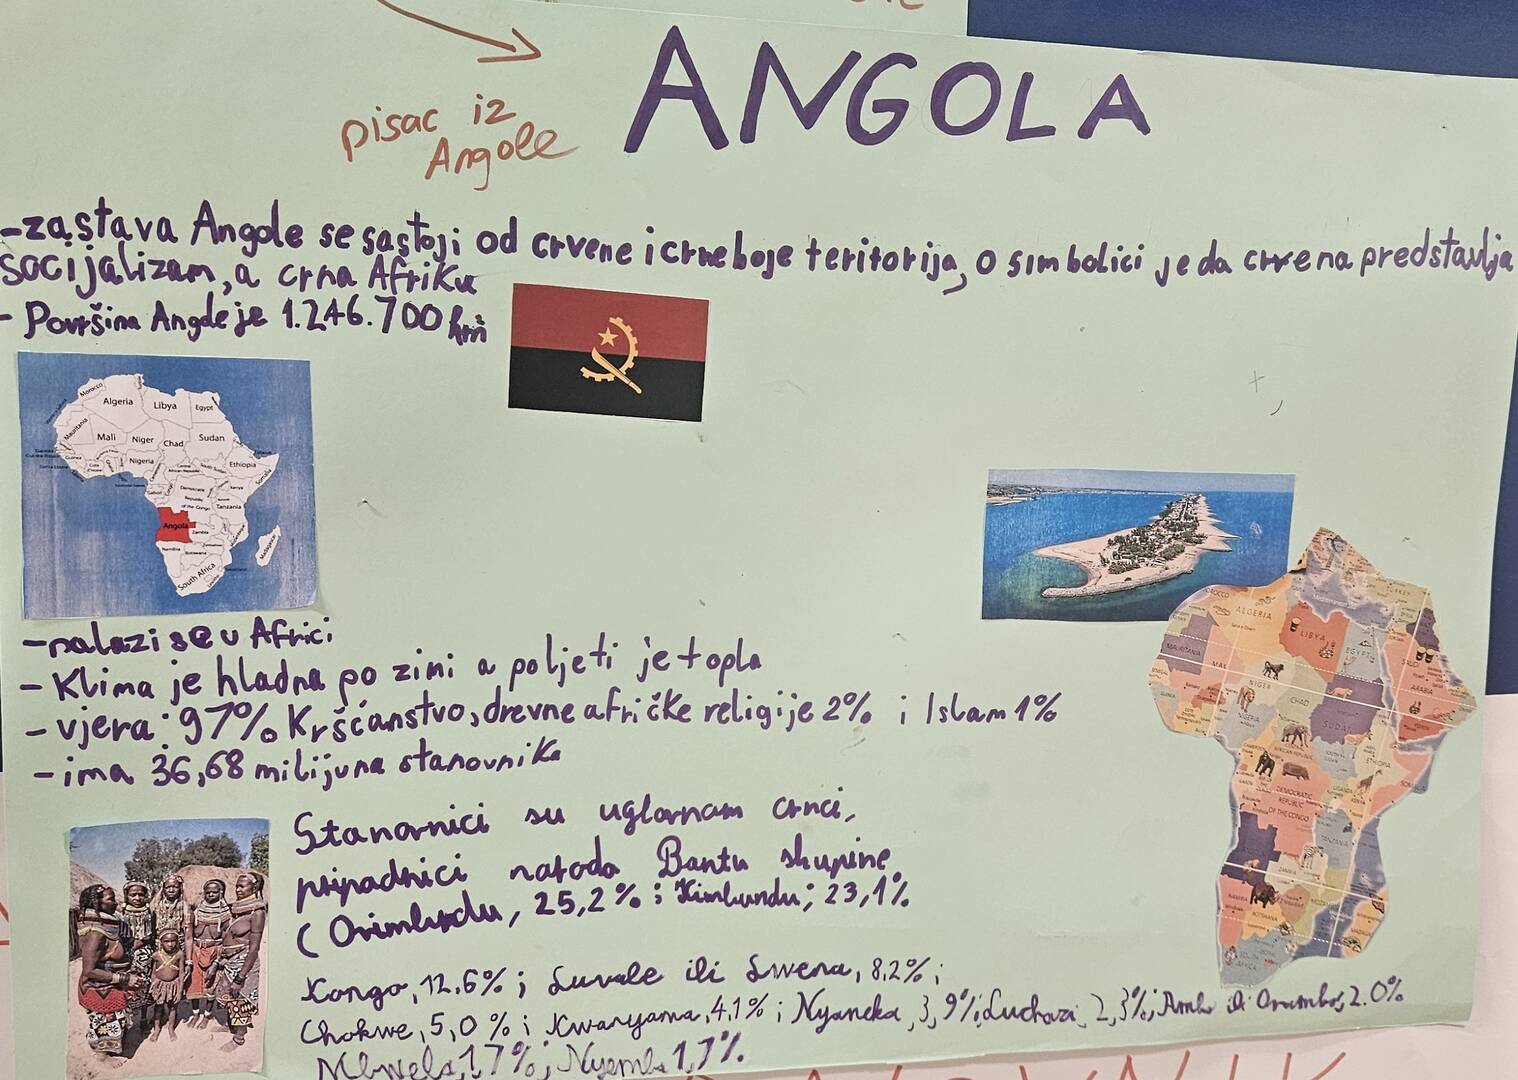 ANGOLA
pisac iz
Angole
-zastava Angole se sastoji od crvene i crne boje teritorija, o simbolici je da crvena predstavlja
socijalizam, a crna Afriku
- Površina Angole je 1.246.700 km²
Morocco
Algeria
Libya
Egypt
Mauritania
Mali
Niger
Chad
Sudan
Nigeria
Ethiopia
Somalia
Kenya
Democratic
Republic
of the Congo
Tanzania
Angola
Zambia
Namibia
Botswana
Madagascar
South Africa
-nalazi se u Africi
- Klima je hladna po zimi a po ljeti je topla
- vjera: 97% Kršćanstvo, drevne afričke religije 2% i Islam 1%
- ima 36,68 milijuna stanovnika
TURKEY
ALGERIA
LIBYA
EGYPT
MAURITANIA
MALI
NIGER
CHAD
SUDAN
SAUDI
ARABIA
NIGERIA
ETHIOPIA
DEMOCRATIC
REPUBLIC
OF THE CONGO
UGANDA
KENYA
TANZANIA
ZAMBIA
NAMIBIA
BOTSWANA
SOUTH
AFRICA
Stanovnici su uglavnam crnci,
pripadnici naroda Bantu skupine
(Ovimbundu, 25,2% ; Kimbundu; 23,1%
Kongo, 12,6% ; Luvale ili Lwena, 8,2% ;
Chokwe, 5,0 % ; Kwanyama, 4,1% ; Nyaneka, 3,9%; Luchazi, 2,3%; Ambo ili Ovambo, 2.0%
Mbwela, 1,7%; Nyemba 1,7%